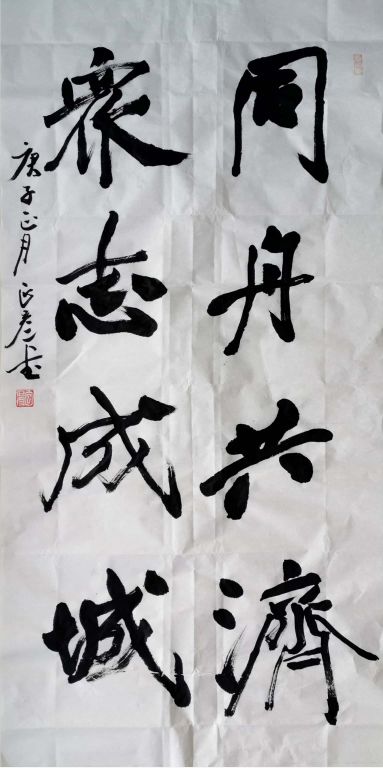 同舟共濟
衆志成城
庚子正月 正彦书